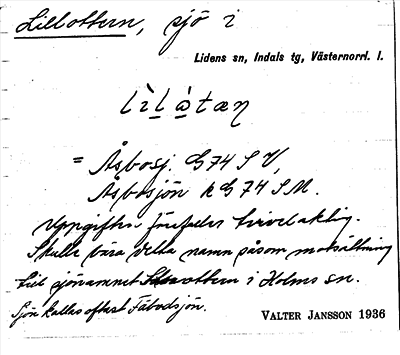 Lillottern, sjö i
Lidens sn, Indals tg, Västernorrl. l.
lìlàtæn
= Åsbosj. G 74 S V,
Åsbosjön k G 74 S M.
Uppgiften förefaller tvivelaktig.
Skulle bära detta namn såsom motsättning
till sjönamnet Storottern i Holms sn.
Sjön kallas oftast Fäbodsjön.
VALTER JANSSON 1936